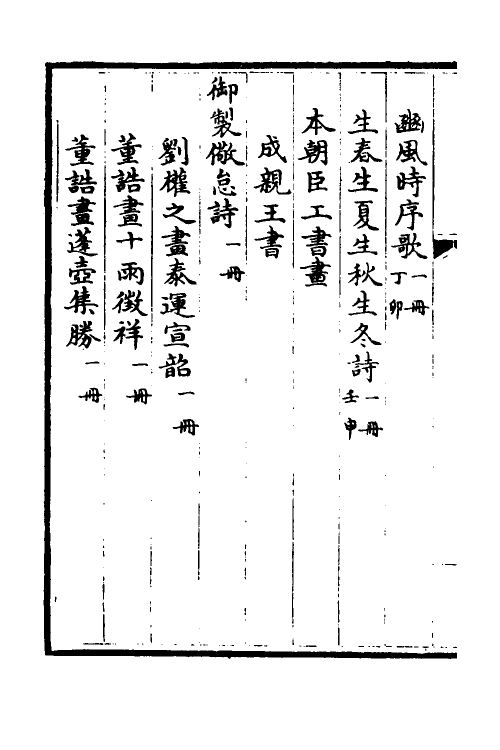 豳風時序歌一冊丁卯
生春生夏生秋生冬詩一冊壬申
本朝臣工書畫
成親王書
御製儆怠詩一冊
劉權之畫泰運宣韶一冊
董誥畫十雨徵祥一冊
董誥畫蓬壺集勝一冊